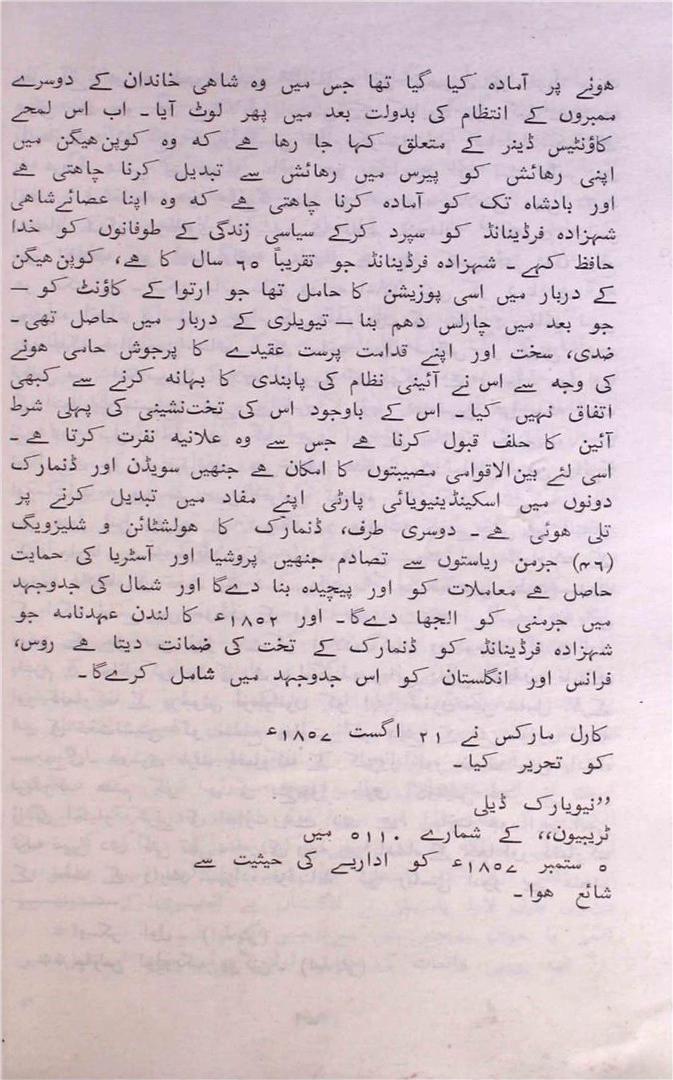 هونے پر آمادہ کیا گیا تھا جس میں وہ شاهی خاندان کے دوسرے
ممبروں کے انتظام کی بدولت بعد میں پھر لوٹ آیا ۔ اب اس لمحے
کاؤنٹیس ڈینر کے متعلق کہا جا رها هے که وہ کوپن هیگن میں
اپنی رهائش کو پیرس میں رهائش سے تبدیل کرنا چاهتی هے
اور بادشاہ تک کو آمادہ کرنا چاهتی هے که وہ اپنا عصائے شاهی
شہزادہ فرڈینانڈ کو سپرد کرکے سیاسی زندگی کے طوفانوں کو خدا
حافظ کہے ۔ شہزادہ فرڈینانڈ جو تقریباً ٦٥ سال کا هے، کوپن هیگن
کے دربار میں اسی پوزیشن کا حامل تھا جو ارتوا کے کاؤنٹ کو —
جو بعد میں چارلس دهم بنا — تیویلری کے دربار میں حاصل تھی ۔
ضدی، سخت اور اپنے قدامت پرست عقیدے کا پرجوش حامی هونے
کی وجه سے اس نے آئینی نظام کی پابندی کا بہانه کرنے سے کبھی
اتفاق نہیں کیا ۔ اس کے باوجود اس کی تخت نشینی کی پہلی شرط
آئین کا حلف قبول کرنا هے جس سے وہ علانیه نفرت کرتا هے ۔
اسی لئے بین الاقوامی مصیبتوں کا امکان هے جنھیں سویڈن اور ڈنمارک
دونوں میں اسکینڈینیویائی پارٹی اپنے مفاد میں تبدیل کرنے پر
تلی هوئی هے ۔ دوسری طرف، ڈنمارک کا هولشٹائن و شلیزویگ
(٤٦) جرمن ریاستوں سے تصادم جنھیں پروشیا اور آسٹریا کی حمایت
حاصل هے معاملات کو اور پیچیدہ بنا دےگا اور شمال کی جدوجہد
میں جرمنی کو الجھا دےگا ۔ اور ١٨٥٢ء کا لندن عہدنامه جو
شہزادہ فرڈینانڈ کو ڈنمارک کے تخت کی ضمانت دیتا هے روس،
فرانس اور انگلستان کو اس جدوجہد میں شامل کرےگا ۔
کارل مارکس نے ٢١ اگست ١٨٥٧ء
کو تحریر کیا ۔
”نیویارک ڈیلی
ٹریبیون،، کے شمارے ٥١١٠ میں
٥ ستمبر ١٨٥٧ء کو اداریے کی حیثیت سے
شائع هوا ۔